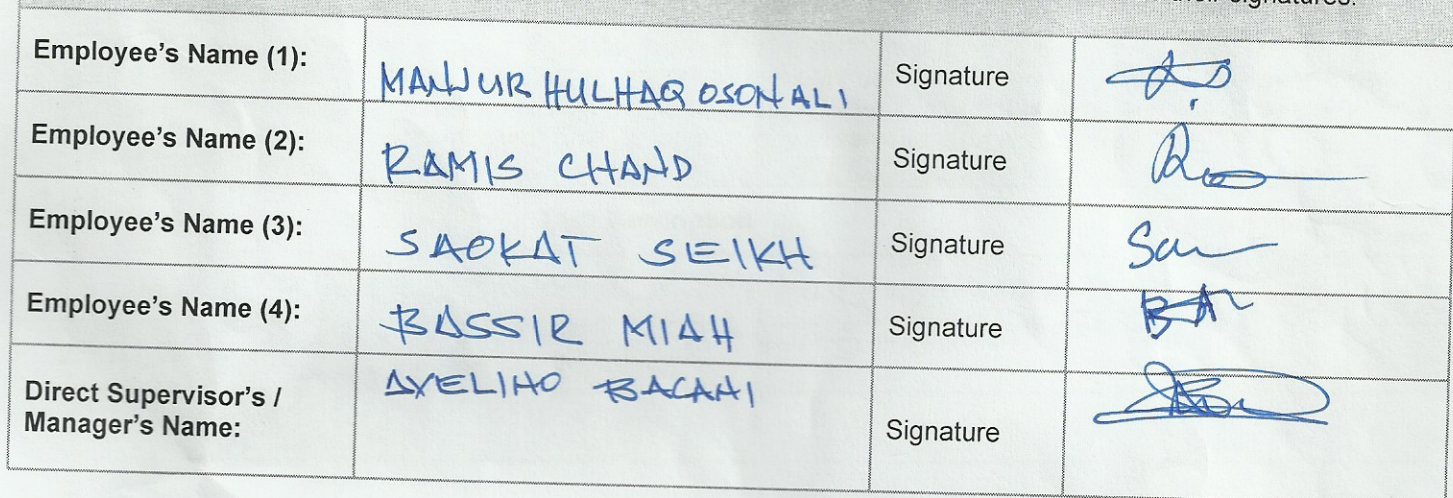 their signatures.
Employee's Name (1): MANJUR HULHAQ OSON ALI Signature
Employee's Name (2): RAMIS CHAND Signature
Employee's Name (3): SAOKAT SEIKH Signature Sau
Employee's Name (4): BASSIR MIAH Signature
Direct Supervisor's / AVELINO BACANI
Manager's Name: Signature